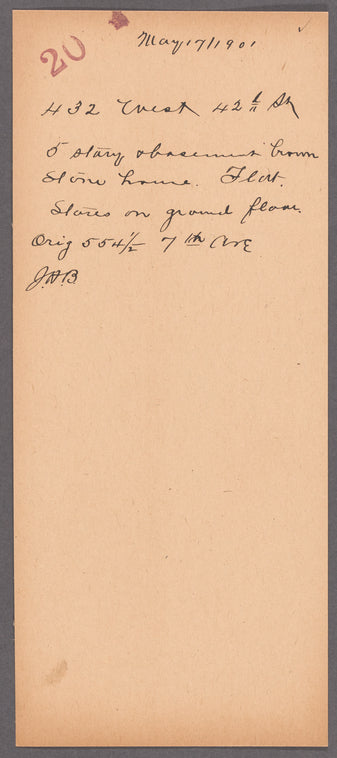 20
May 17/1901
432 West 42nd St
5 story & basement brown
Stone house. Flat.
Stores on ground floor.
Orig 554 1/2 7th Ave
J.A.B